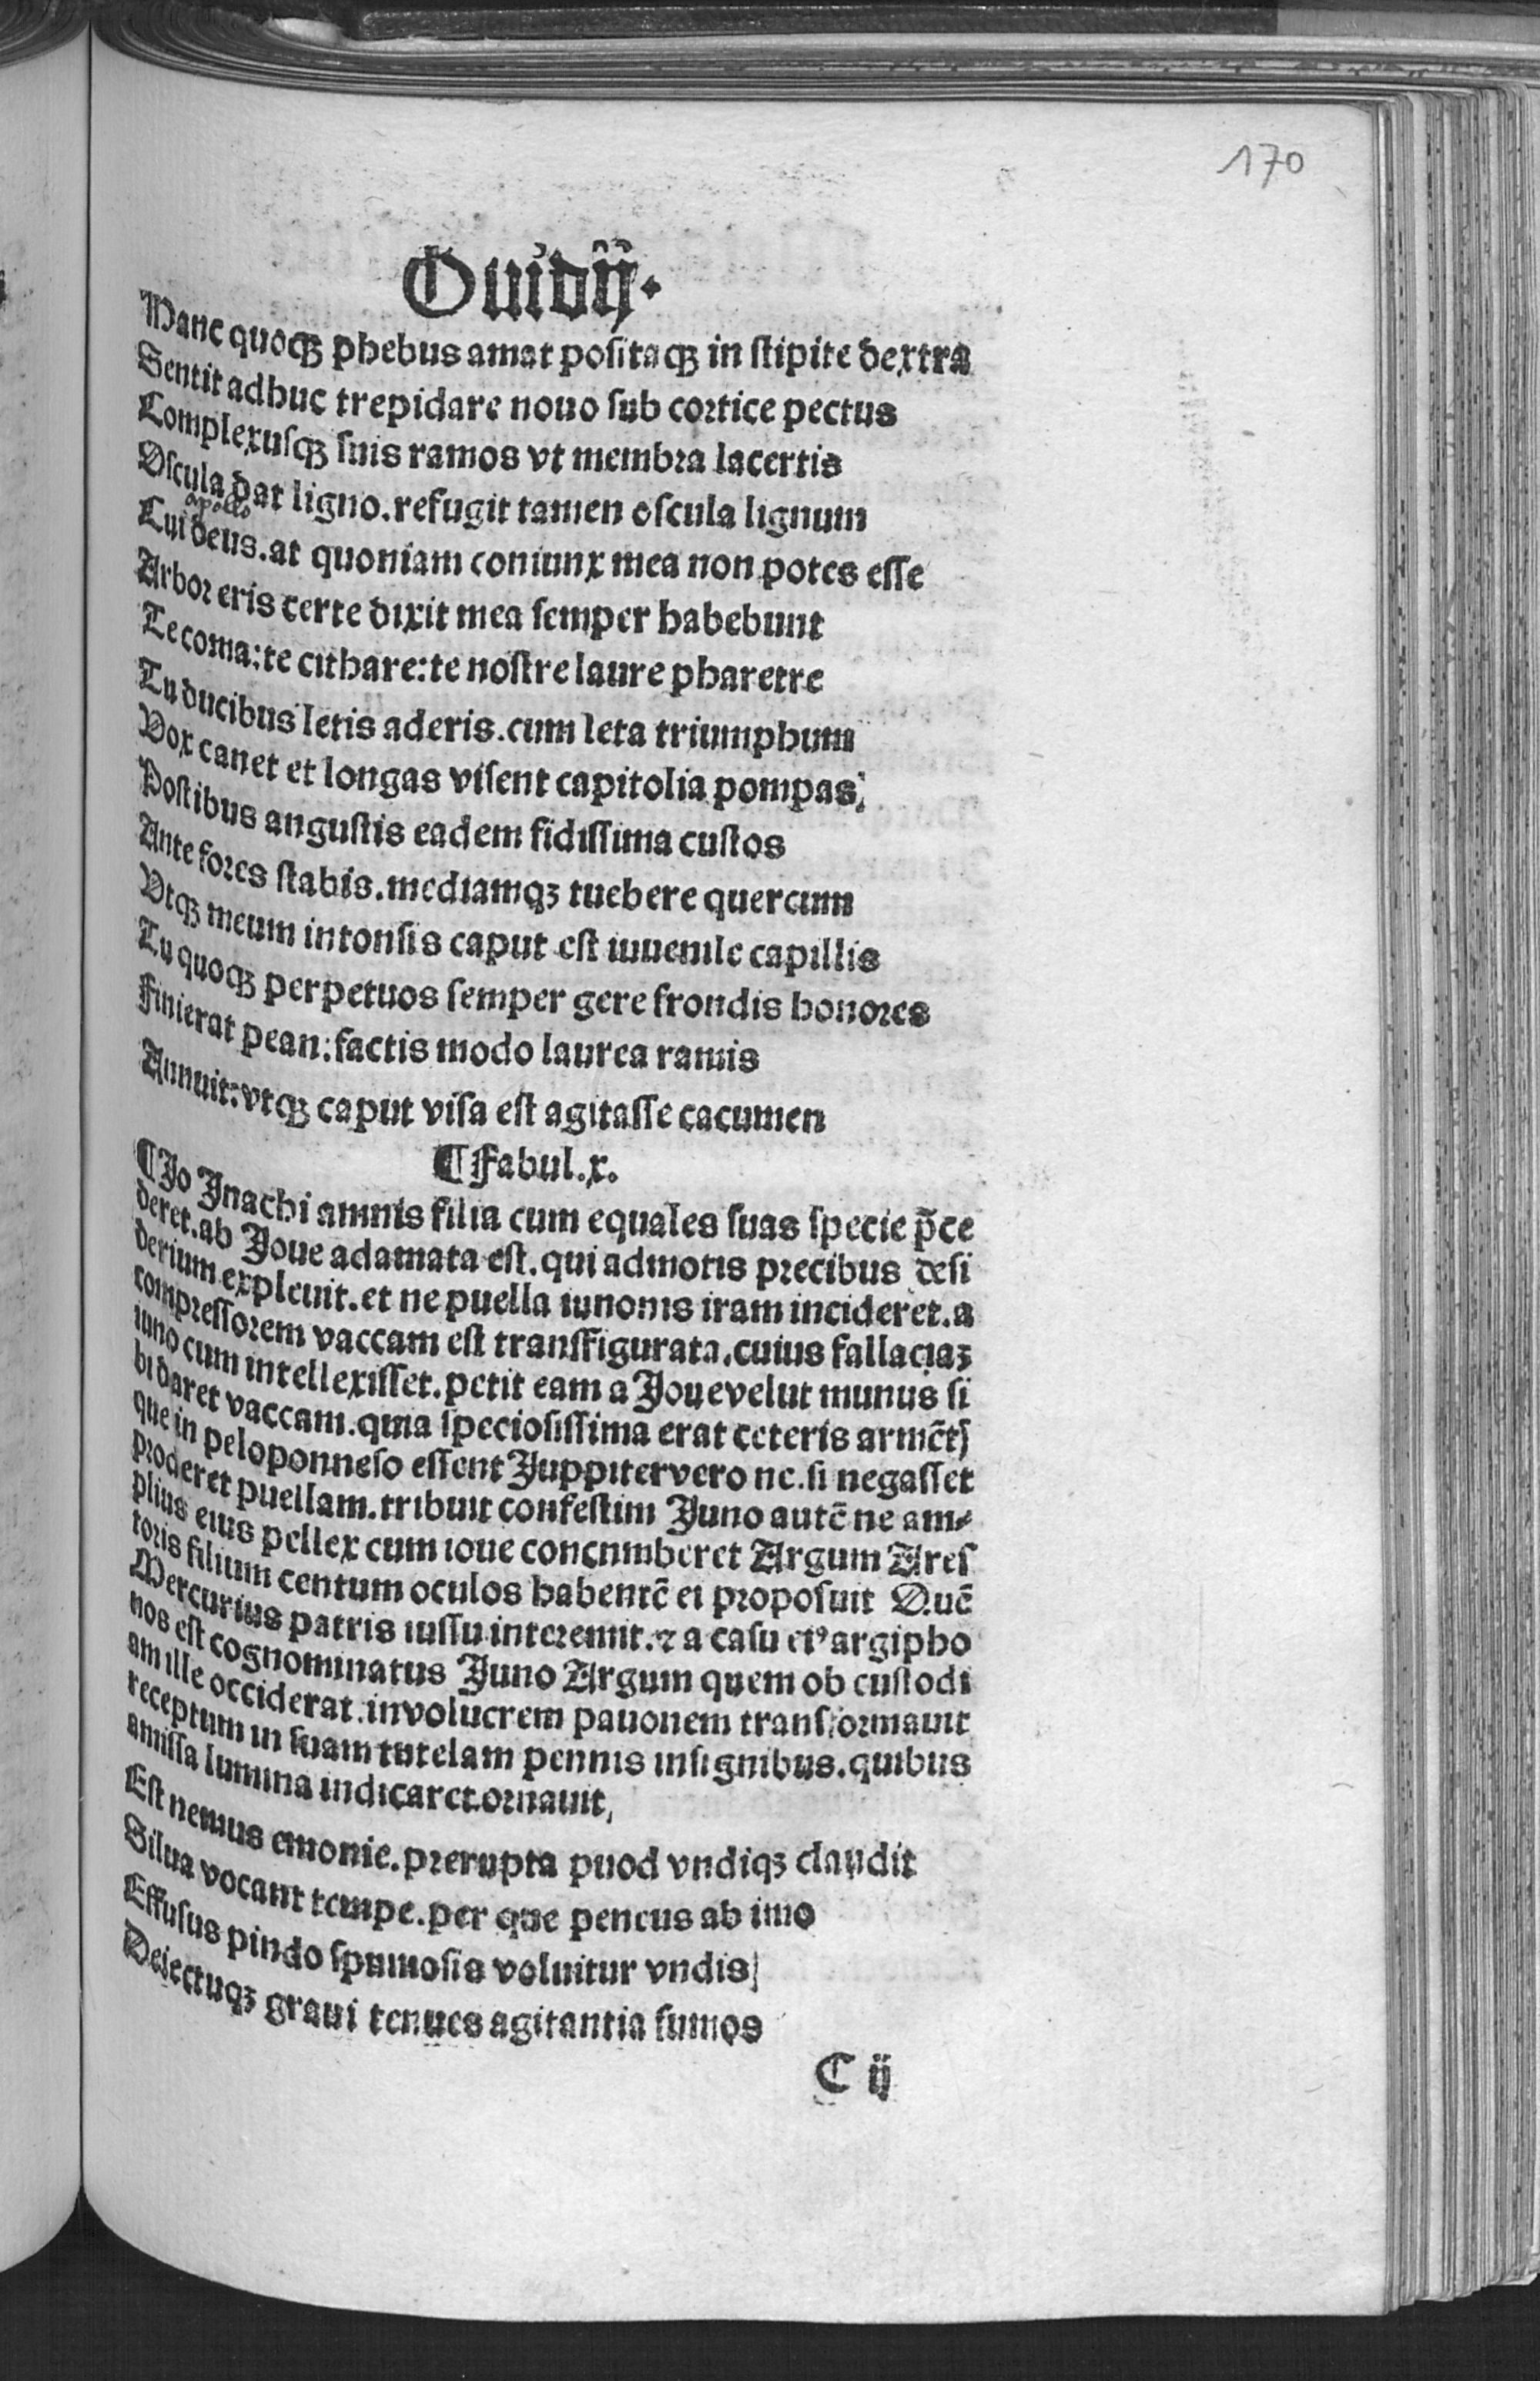 170
Ouidij.
Hanc quoqꝫ phebus amat positaqꝫ in stipite dextra
Sentit adhuc trepidare nouo sub cortice pectus
Complexusqꝫ suis ramos vt membra lacertis
Oscula dat ligno. refugit tamen oscula lignum
apollo
Cui deus. at quoniam coniunx mea non potes esse
Arbor eris certe dixit mea semper habebunt
Te coma: te cithare: te nostre laure pharetre
Tu ducibus letis aderis. cum leta triumphum
Vox canet et longas visent capitolia pompas
Postibus angustis eadem fidissima custos
Ante fores stabis. mediamqꝫ tuebere quercum
Vtqꝫ meum intonsis caput est iuuenile capillis
Tu quoqꝫ perpetuos semper gere frondis honores
Finierat pean: factis modo laurea ramis
Annuit: vtqꝫ caput visa est agitasse cacumen
¶ Fabul. x.
¶ Io Inachi amnis filia cum equales suas specie p̄ce
deret. ab Ioue adamata est. qui admotis precibus desi
derium expleuit. et ne puella iunonis iram incideret. a
compressorem vaccam est transfigurata. cuius fallaciaꝫ
iuno cum intellexisset. petit eam a Ioue velut munus si
bi daret vaccam. quia speciosissima erat ceteris armētꝭ
que in peloponneso essent Iuppiter vero ne. si negasset
proderet puellam. tribuit confestim Iuno autē ne am⸗
plius eius pellex cum ioue concnmberet Argum Ares
toris filium centum oculos habentē ei proposuit Quē
Mercurius patris iussu interemit. ⁊ a casu eiꝰ argipho
nos est cognominatus Iuno Argum quem ob custodi
am ille occiderat. in volucrem pauonem transformauit
receptum in suam tutelam pennis insignibus. quibus
amissa lumina indicaret ornauit,
Est nemus emonie. prerupta puod vndiqꝫ claudit
Silua vocant tempe. per que peneus ab imo
Effusus pindo spumosis voluitur vndis
Deiectuqꝫ graui tenues agitantia fumos
C ij